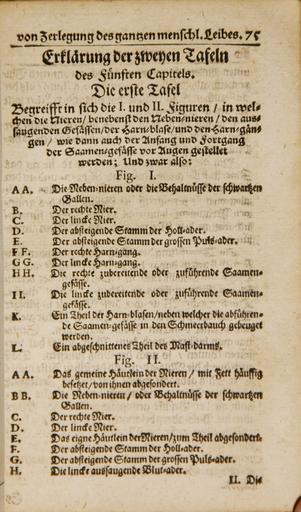 von Zerlegung des gantzen menschl. Leibes. 75
Erklärung der zweyen Tafeln
des Fünften Capitels.
Die erste Tafel
Begreifft in sich die I. und II. Figuren / in wel-
chen die Nieren / benebenst den Neben-nieren / den aus-
saugenden Gefässen / der Harn-blase / und den Harn-gän-
gen / wie dann auch der Anfang und Fortgang
der Saamen-gefässe vor Augen gestellet
werden; Und zwar also:
Fig. I.
AA. Die Neben-nieren oder die Behältnüsse der schwartzen
Gallen.
B. Der rechte Nier.
C. Der lincke Nier.
D. Der absteigende Stamm der Holl-ader.
E. Der absteigende Stamm der grossen Puls-ader.
FF. Der rechte Harn-gang.
GG. Der lincke Harn-gang.
HH. Die rechte zubereitende oder zuführende Saamen-
gefässe.
II. Die lincke zubereitende oder zuführende Saamen-
gefässe.
K. Ein Theil der Harn-blasen / neben welcher die abführen-
de Saamen-gefässe in den Schmeerbauch gebeuget
werden.
L. Ein abgeschnittenes Theil des Mast-darms.
Fig. II.
AA. Das gemeine Häutlein der Nieren / mit Fett häuffig
besetzet / von ihnen abgesondert.
BB. Die Neben-nieren / oder Behältnüsse der schwartzen
Gallen.
C. Der rechte Nier.
D. Der lincke Nier.
E. Das eigne Häutlein der Nieren / zum Theil abgesondert.
F. Der absteigende Stamm der Holl-ader.
G. Der absteigende Stamm der grossen Puls-ader.
H. Die lincke aussaugende Blut-ader.
II. Die